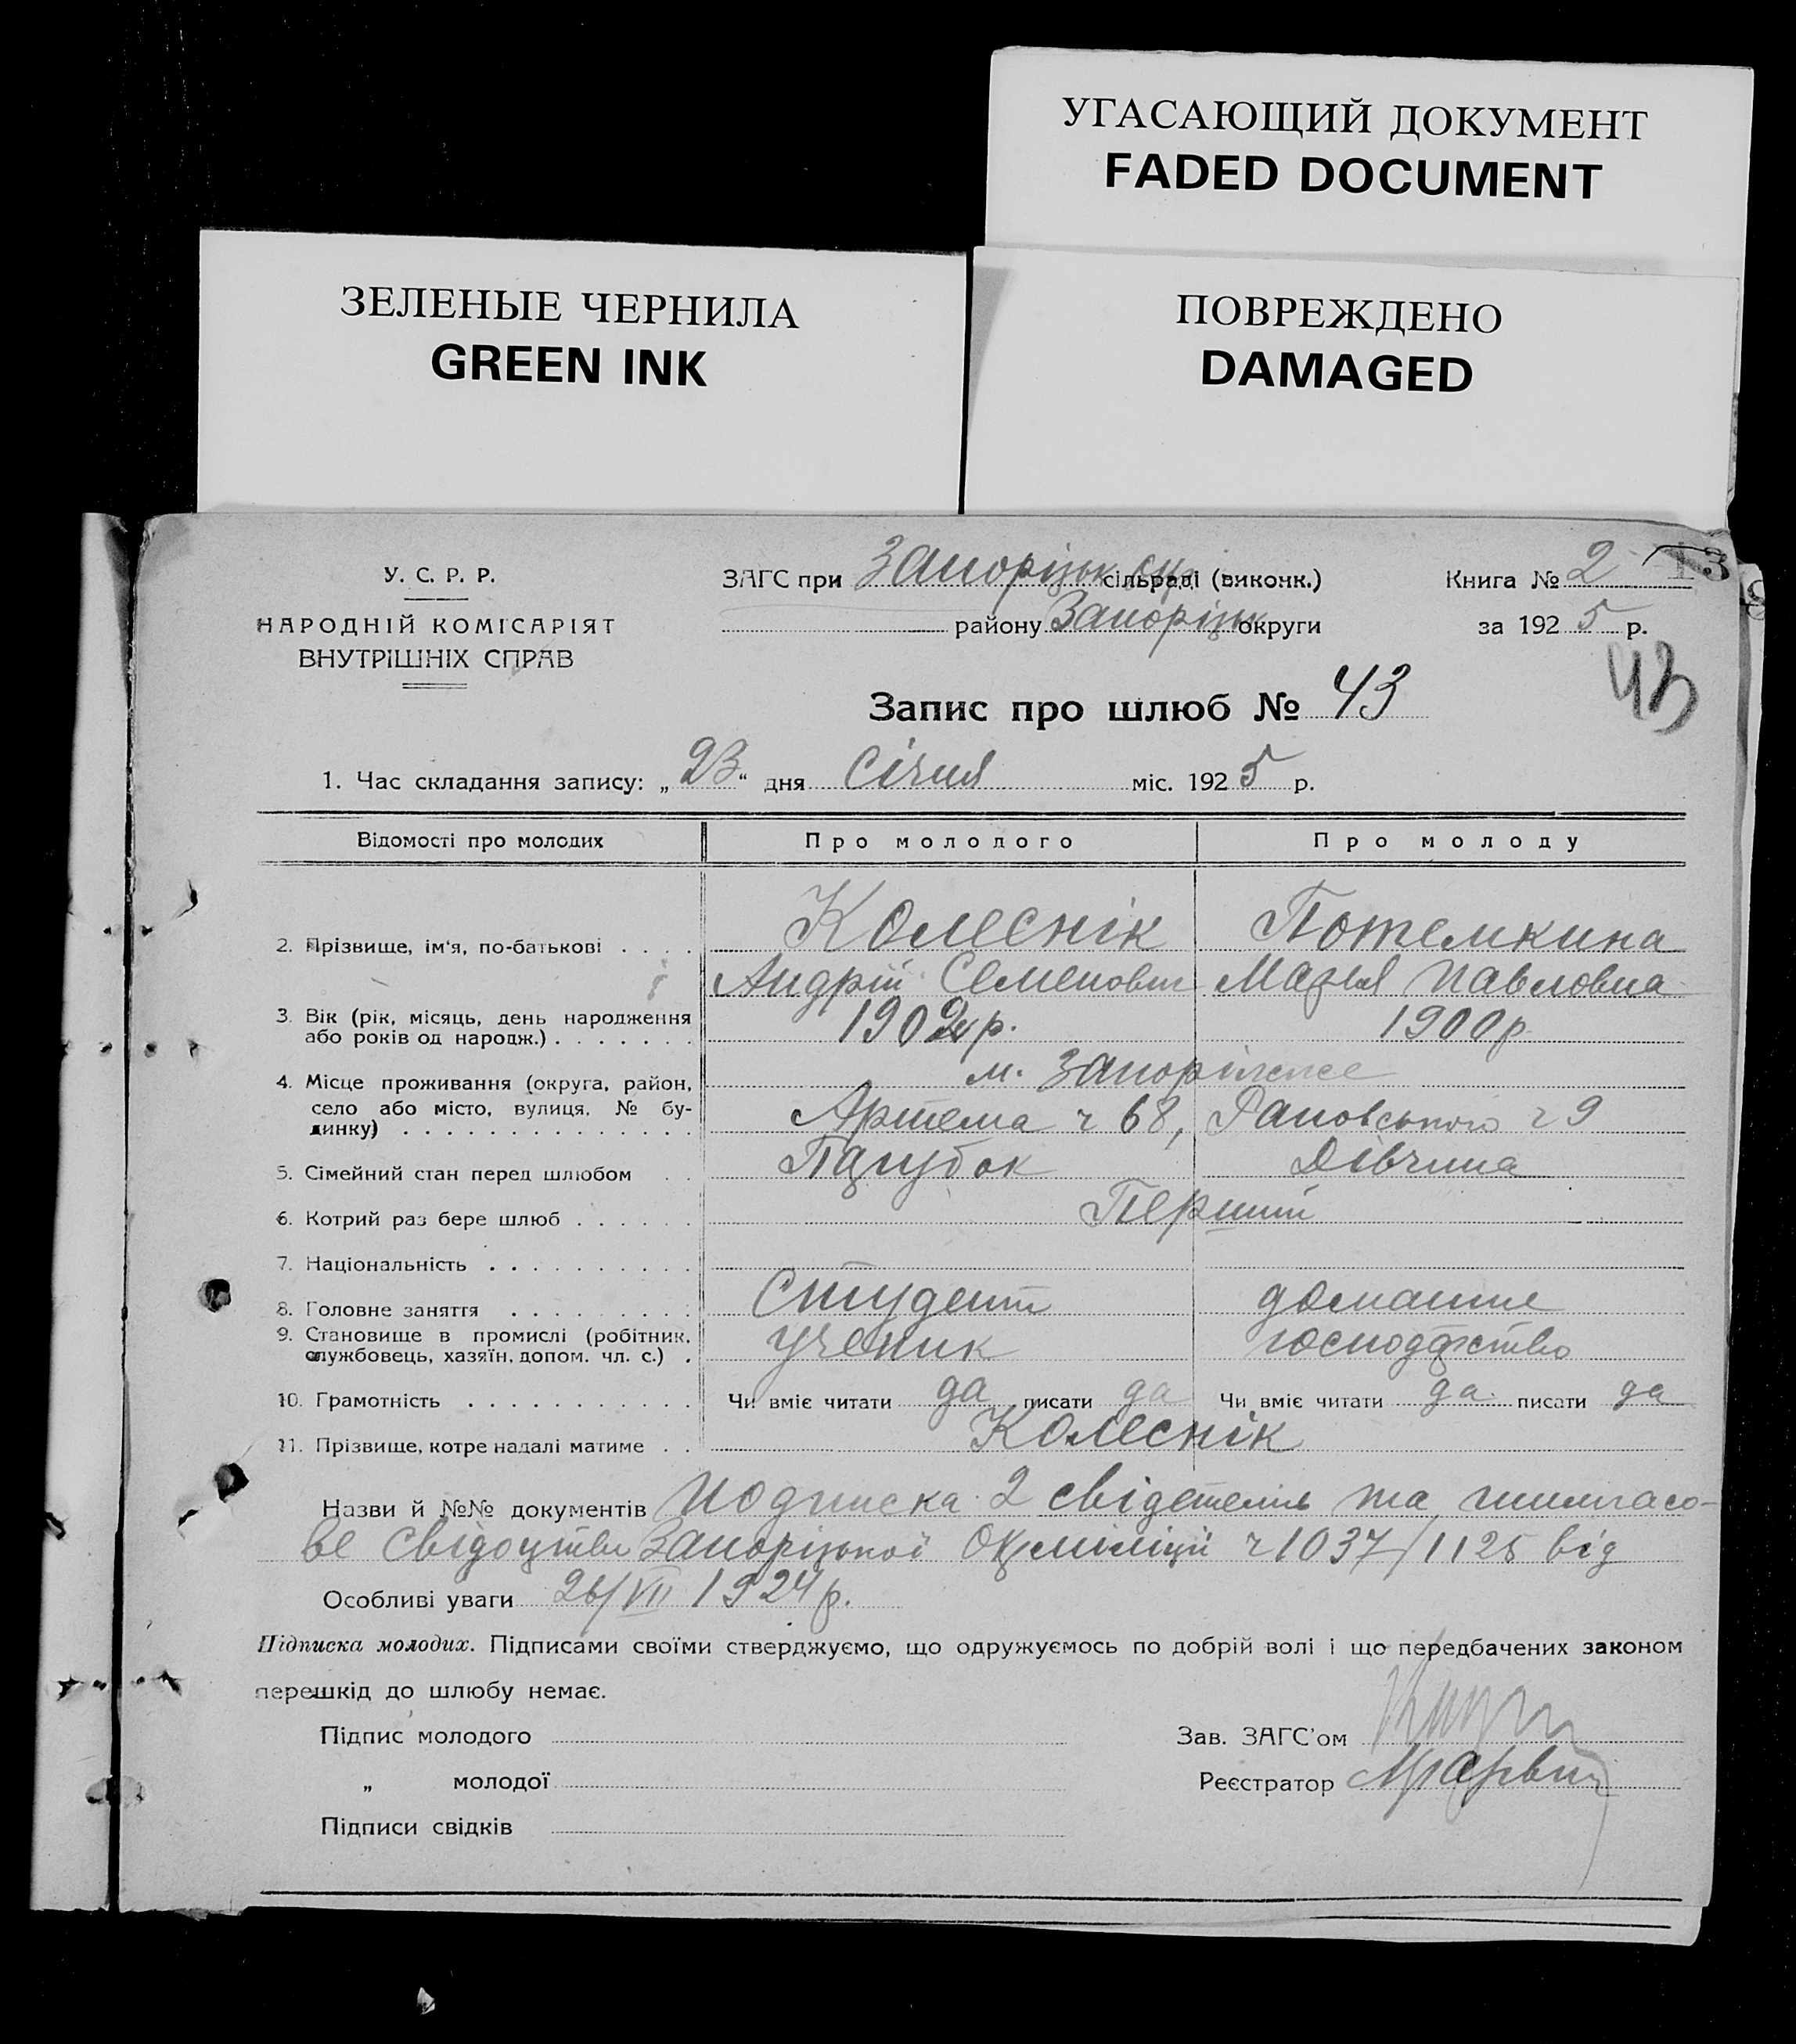 УГАСАЮЩИЙ ДОКУМЕНТ
FADED DOCUMENT
ЗЕЛЕНЫЕ ЧЕРНИЛА
GREEN INK
ПОВРЕЖДЕНО
DAMAGED
У. С. Р. Р.
НАРОДНІЙ КОМІСАРІЯТ
ВНУТРІШНІХ СПРАВ
ЗАГС при Запорізьк окр. сільраді (виконк.)
району Запорізьк округи
Книга № 2
за 1925 р.
43
Запис про шлюб № 43
1. Час складання запису: „23“ дня Січня міс. 1925 р.
Відомості про молодих Про молодого Про молоду
2. Прізвище, ім'я, по-батькові . . . . Колеснік Потемкина
Андрій Семенович Марія Павловна
3. Вік (рік, місяць, день народження або років од народж.) . . . . . . . 1902 р. 1900 р
4. Місце проживання (округа, район, село або місто, вулиця, № будинку) . . . . . . . . . . . . . . м. Запоріжже
Артема ч 68, ч 9
5. Сімейний стан перед шлюбом . . Парубок Дівчина
6. Котрий раз бере шлюб . . . . . . Перший
7. Національність . . . . . . . . . .
8. Головне заняття . . . . . . . . . Студент домашнє
9. Становище в промислі (робітник, службовець, хазяїн, допом. чл. с.) . ученик господарство
10. Грамотність . . . . . . . . . . . Чи вміє читати да писати да Чи вміє читати да писати да
11. Прізвище, котре надалі матиме . . Колеснік
Назви й №№ документів Подписка 2 свідетелів та тимчасо-
ве свідоцтво Запорізької Окрміліції ч 1037/1125 від
Особливі уваги 26/VII 1924 р.
Підписка молодих. Підписами своїми стверджуємо, що одружуємось по добрій волі і що передбачених законом
перешкід до шлюбу немає.
Підпис молодого
„ молодої
Підписи свідків
Зав. ЗАГС'ом
Реєстратор